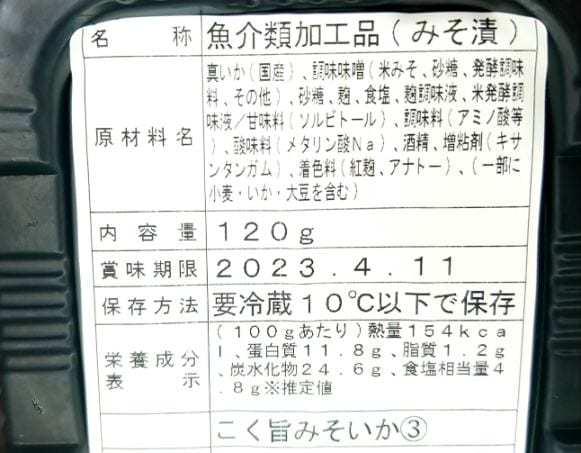 名称 魚介類加工品(みそ漬)
原材料名 真いか(国産)、調味味噌(米みそ、砂糖、発酵調味
料、その他)、砂糖、麹、食塩、麹調味液、米発酵調
味液／甘味料(ソルビトール)、調味料(アミノ酸等
)、酸味料(メタリン酸Na)、酒精、増粘剤(キサ
ンタンガム)、着色料(紅麹、アナトー)、(一部に
小麦・いか・大豆を含む)
内容量 120g
賞味期限 2023.4.11
保存方法 要冷蔵10℃以下で保存
栄養成分表示 (100gあたり)熱量154kca
l、蛋白質11.8g、脂質1.2g
、炭水化物24.6g、食塩相当量4
.8g※推定値
こく旨みそいか③